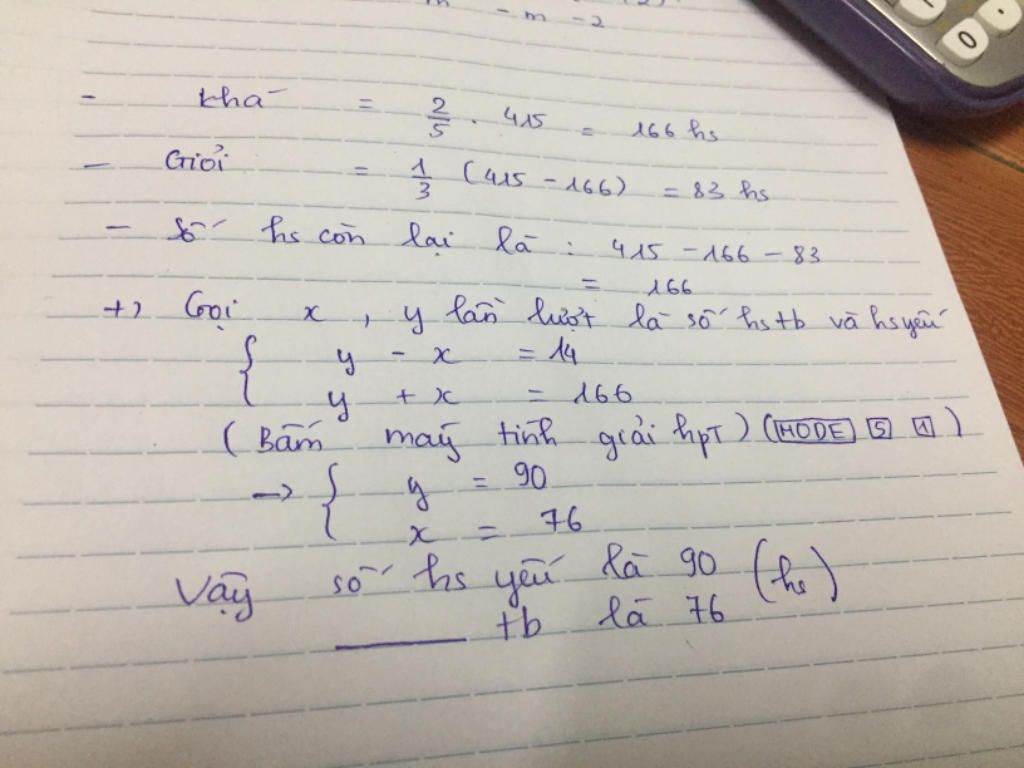 - m - 2
- Khá = 2/5 . 415 = 166 hs
- Giỏi = 1/3 (415 - 166) = 83 hs
- Số hs còn lại là : 415 - 166 - 83
= 166
+) Gọi x , y lần lượt là số hs tb và hs yếu
{ y - x = 14
y + x = 166
( Bấm máy tính giải hpT ) ( MODE 5 1 )
→ { y = 90
x = 76
Vậy số hs yếu là 90 (hs)
____ tb là 76
0